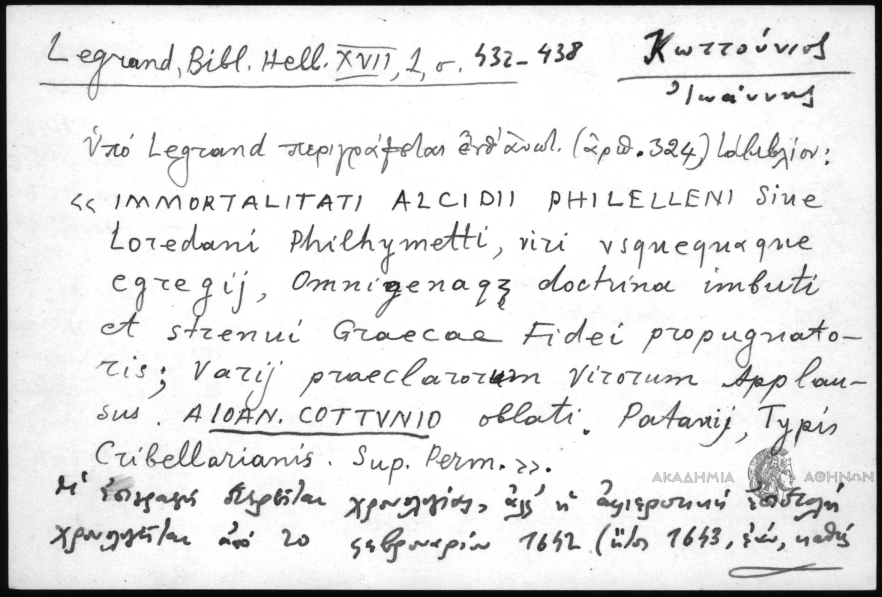 Legrand, Bibl. Hell. XVII, 1, σ. 432-438
Κωττούνιος
Ἰωάννης
Ὑπό Legrand περιγράφεται ἐνθ' ἀνωτ. (ἀρθ. 324) βιβλίον:
« IMMORTALITATI ALCIDII PHILELLENI Siue
Loredani Philhymetti, viri vsquequaque
egregij, Omnigenaqȝ doctrina imbuti
et strenui Graecae Fidei propugnato-
ris; Varij praeclarorum Virorum Applau-
sus. A IOAN. COTTVNIO oblati. Patauij, Typis
Cribellarianis. Sup. Perm. ».
ΑΚΑΔΗΜΙΑ ΑΘΗΝΩΝ
Ἡ ἐπιγραφή στερεῖται χρονολογίας, ἀλλ' ἡ ἀφιερωτική ἐπιστολή
χρονολογεῖται ἀπό 20 φεβρουαρίου 1642 (ἤτοι 1643, καθώς